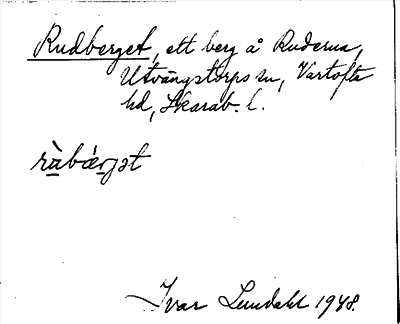 Rudberget, ett berg å Ruderna,
Utvängstorps sn, Vartofta
hd, Skarab. l.
ràbǽrjət
Ivar Lundahl 1948.